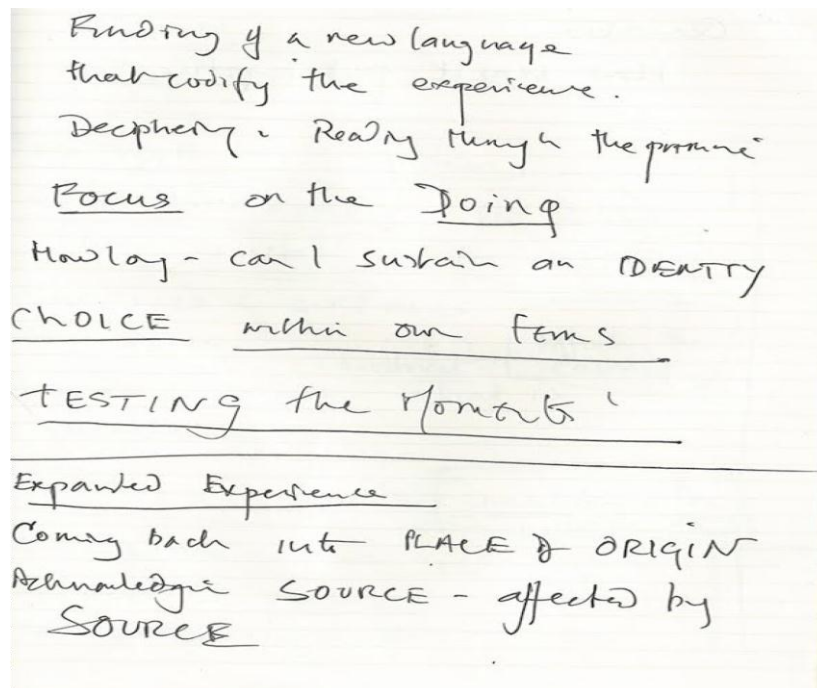 Finding of a new language
that codify the experience.
Deciphering. Reading through the
Focus on the Doing
How long - can I sustain an IDENTITY
CHOICE within own terms
TESTING the Moments
Expanded Experience
Coming back into PLACE of ORIGIN
Acknowledge SOURCE - affected by
SOURCE